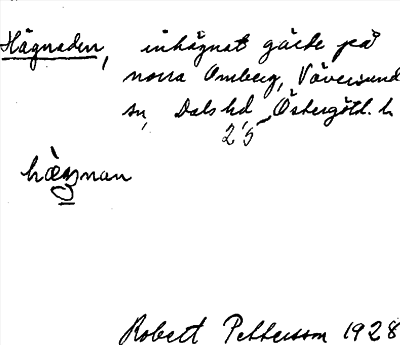 Hägnaden, inhägnat gärde på
norra Omberg, Väversund
sn, Dals hd Östergötl. l.
25
hàgnan
Robert Pettersson 1928